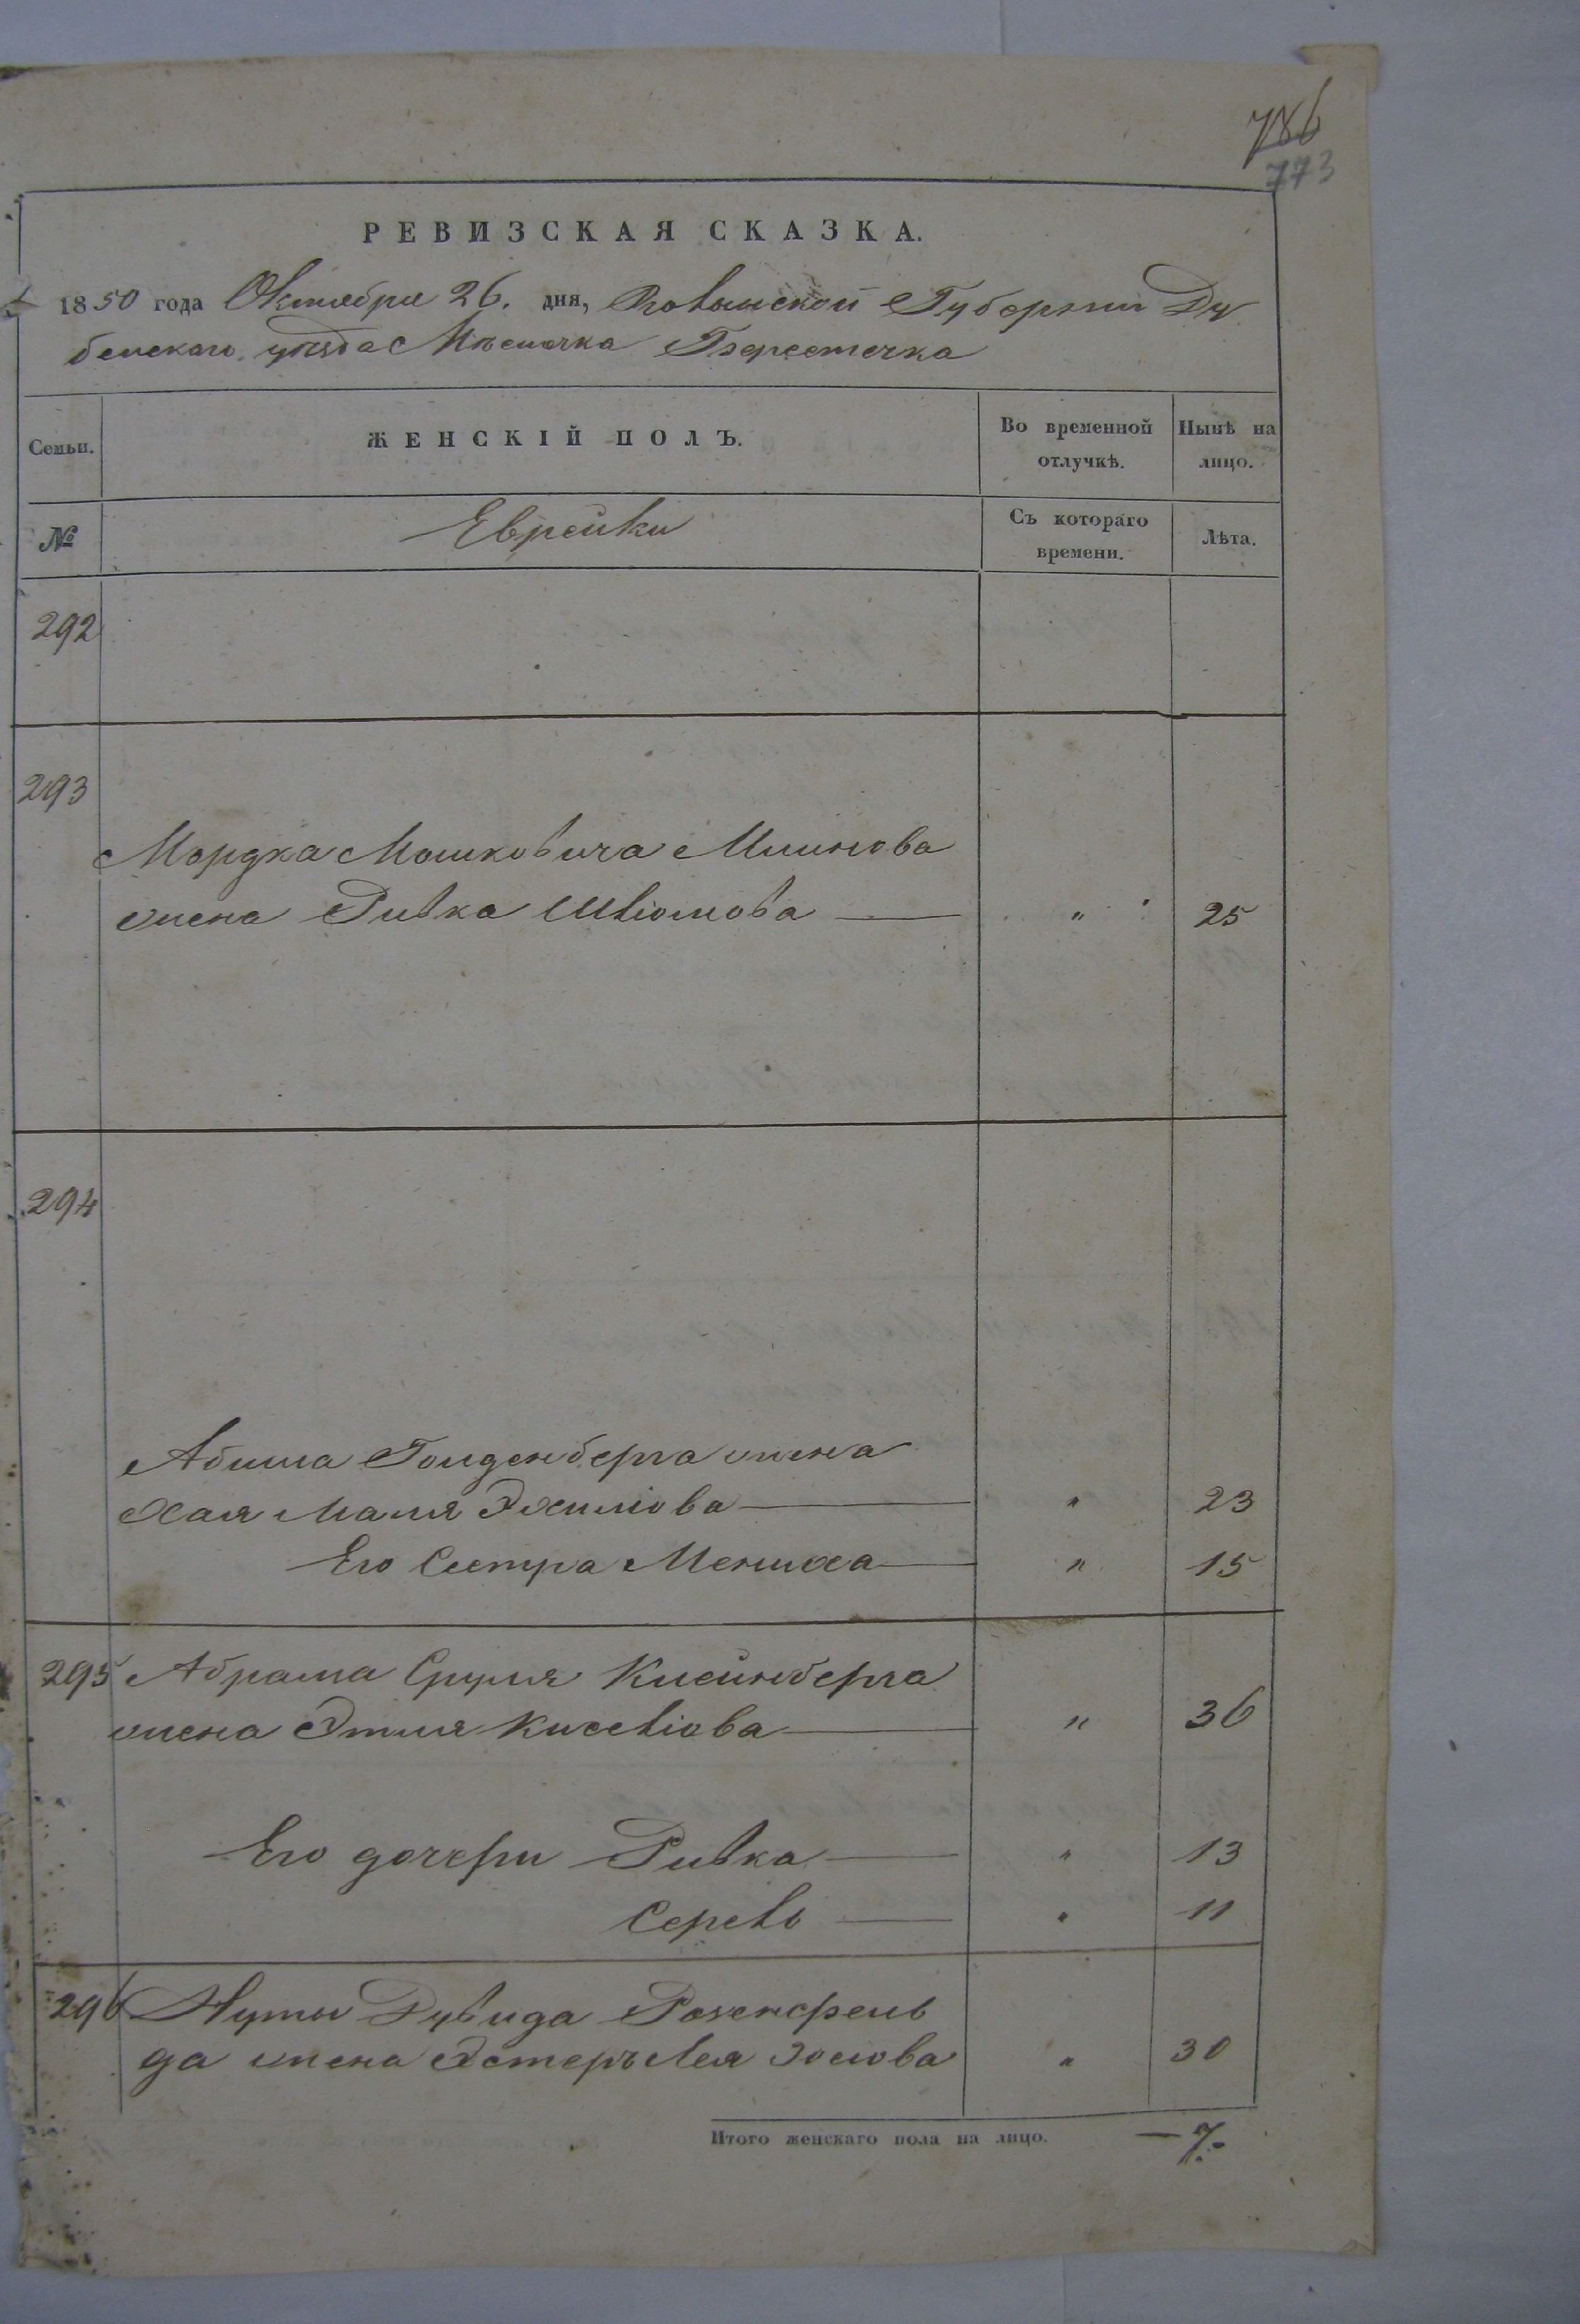 786
773
РЕВИЗСКАЯ СКАЗКА.
1850 года Октября 26. дня, Волынской Губернии Ду
бенскаго уѣзда Мѣстечка Берестечка
Семьи. ЖЕНСКІЙ ПОЛЪ. Во временной отлучкѣ. Нынѣ на лицо.
№ Еврейки Съ котораго времени. Лѣта.
292
293
Мордка Мошковича
жена Ривка Шліомова — " 25
294
Абрама Голденберга жена
Хая Маля — " 23
Его Сестра Мениха — " 15
295 Абрама Сруля Клейнберга
жена Этля Киселіова — " 36
Его дочери Ривка — " 13
Серель — " 11
296 Нуты Дувида Розенфель
да жена Эстеръ Лея Іосіова " 30
Итого женскаго пола на лицо. — 7.